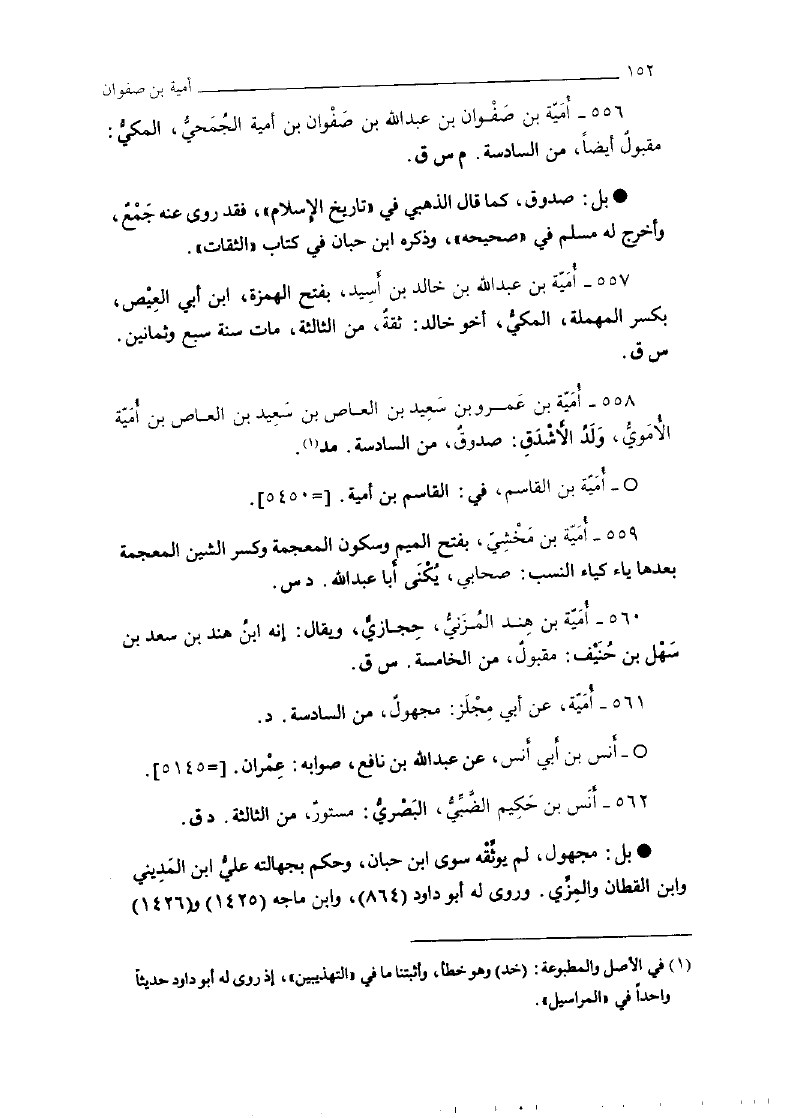 ١٥٢ أمية بن صفوان
٥٥٦ ـ أُمَيّة بن صَفْوان بن عبدالله بن صَفْوان بن أمية الجُمَحيُّ، المكيُّ:
مقبولٌ أيضاً، من السادسة. م س ق.
● بل: صدوق، كما قال الذهبي في «تاريخ الإسلام»، فقد روى عنه جَمْعٌ،
وأخرج له مسلم في «صحيحه»، وذكره ابن حبان في كتاب «الثقات».
٥٥٧ ـ أُمَيّة بن عبدالله بن خالد بن أَسِيد، بفتح الهمزة، ابن أبي العِيْص،
بكسر المهملة، المكيُّ، أخو خالد: ثقةٌ، من الثالثة، مات سنة سبع وثمانين.
س ق.
٥٥٨ ـ أُمَيّة بن عَمـرو بن سَعِيد بن العـاص بن سَعِيد بن العـاص بن أُمَيّة
الأُمَويُّ، وَلَدُ الأَشْدَقِ: صدوقٌ، من السادسة. مد(١).
○ ـ أُمَيّة بن القاسم، في: القاسم بن أمية. [=٥٤٥٠].
٥٥٩ ـ أُمَيّة بن مَخْشِيّ، بفتح الميم وسكون المعجمة وكسر الشين المعجمة
بعدها ياء كياء النسب: صحابي، يُكْنَى أبا عبدالله. د س.
٥٦٠ ـ أُمَيّة بن هِنـد المُـزَنيُّ، حِجـازيٌّ، ويقال: إنه ابنُ هند بن سعد بن
سَهْل بن حُنَيْف: مقبولٌ، من الخامسة. س ق.
٥٦١ ـ أُمَيّة، عن أبي مِجْلَز: مجهولٌ، من السادسة. د.
○ ـ أنس بن أبي أنس، عن عبدالله بن نافع، صوابه: عِمْران. [=٥١٤٥].
٥٦٢ ـ أَنَس بن حَكِيم الضَّبِّيُّ، البَصْريُّ: مستورٌ، من الثالثة. د ق.
● بل: مجهول، لم يوثِّقْه سوى ابن حبان، وحكم بجهالته عليُّ ابن المَدِيني
وابن القطان والمِزِّي. وروى له أبو داود (٨٦٤)، وابن ماجه (١٤٢٥) و(١٤٢٦)
(١) في الأصل والمطبوعة: (خد) وهو خطأ، وأثبتنا ما في «التهذيبين»، إذ روى له أبو داود حديثاً
واحداً في «المراسيل».